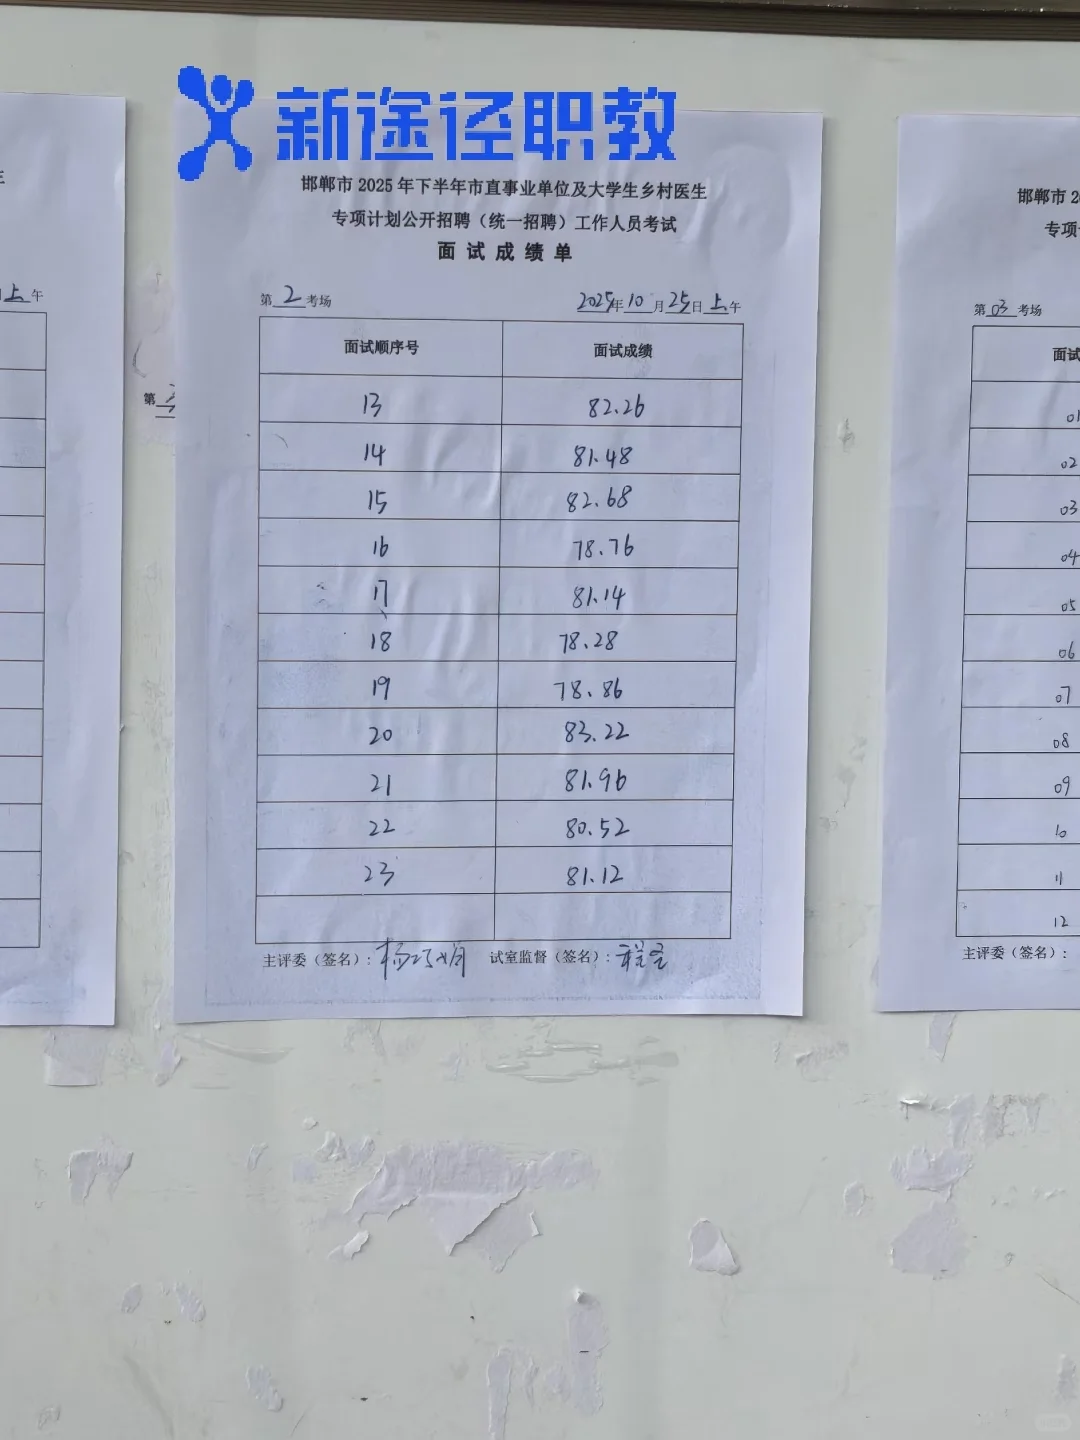 新途径职教
邯郸市 2025 年下半年市直事业单位及大学生乡村医生
专项计划公开招聘（统一招聘）工作人员考试
面 试 成 绩 单
第 2 考场 2025年 10 月 25日 上 午
面试顺序号 面试成绩
13 82.26
14 81.48
15 82.68
16 78.76
17 81.14
18 78.28
19 78.86
20 83.22
21 81.96
22 80.52
23 81.12
主评委（签名）： 试室监督（签名）：
上 午
第
邯郸市 2
专项
第 03 考场
面试
01
02
03
04
05
06
07
08
09
10
11
12
主评委（签名）：